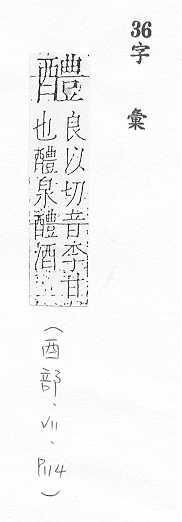 36字彙
醴
良以切音李甘
也醴泉醴酒
(酉部、VII、P114)